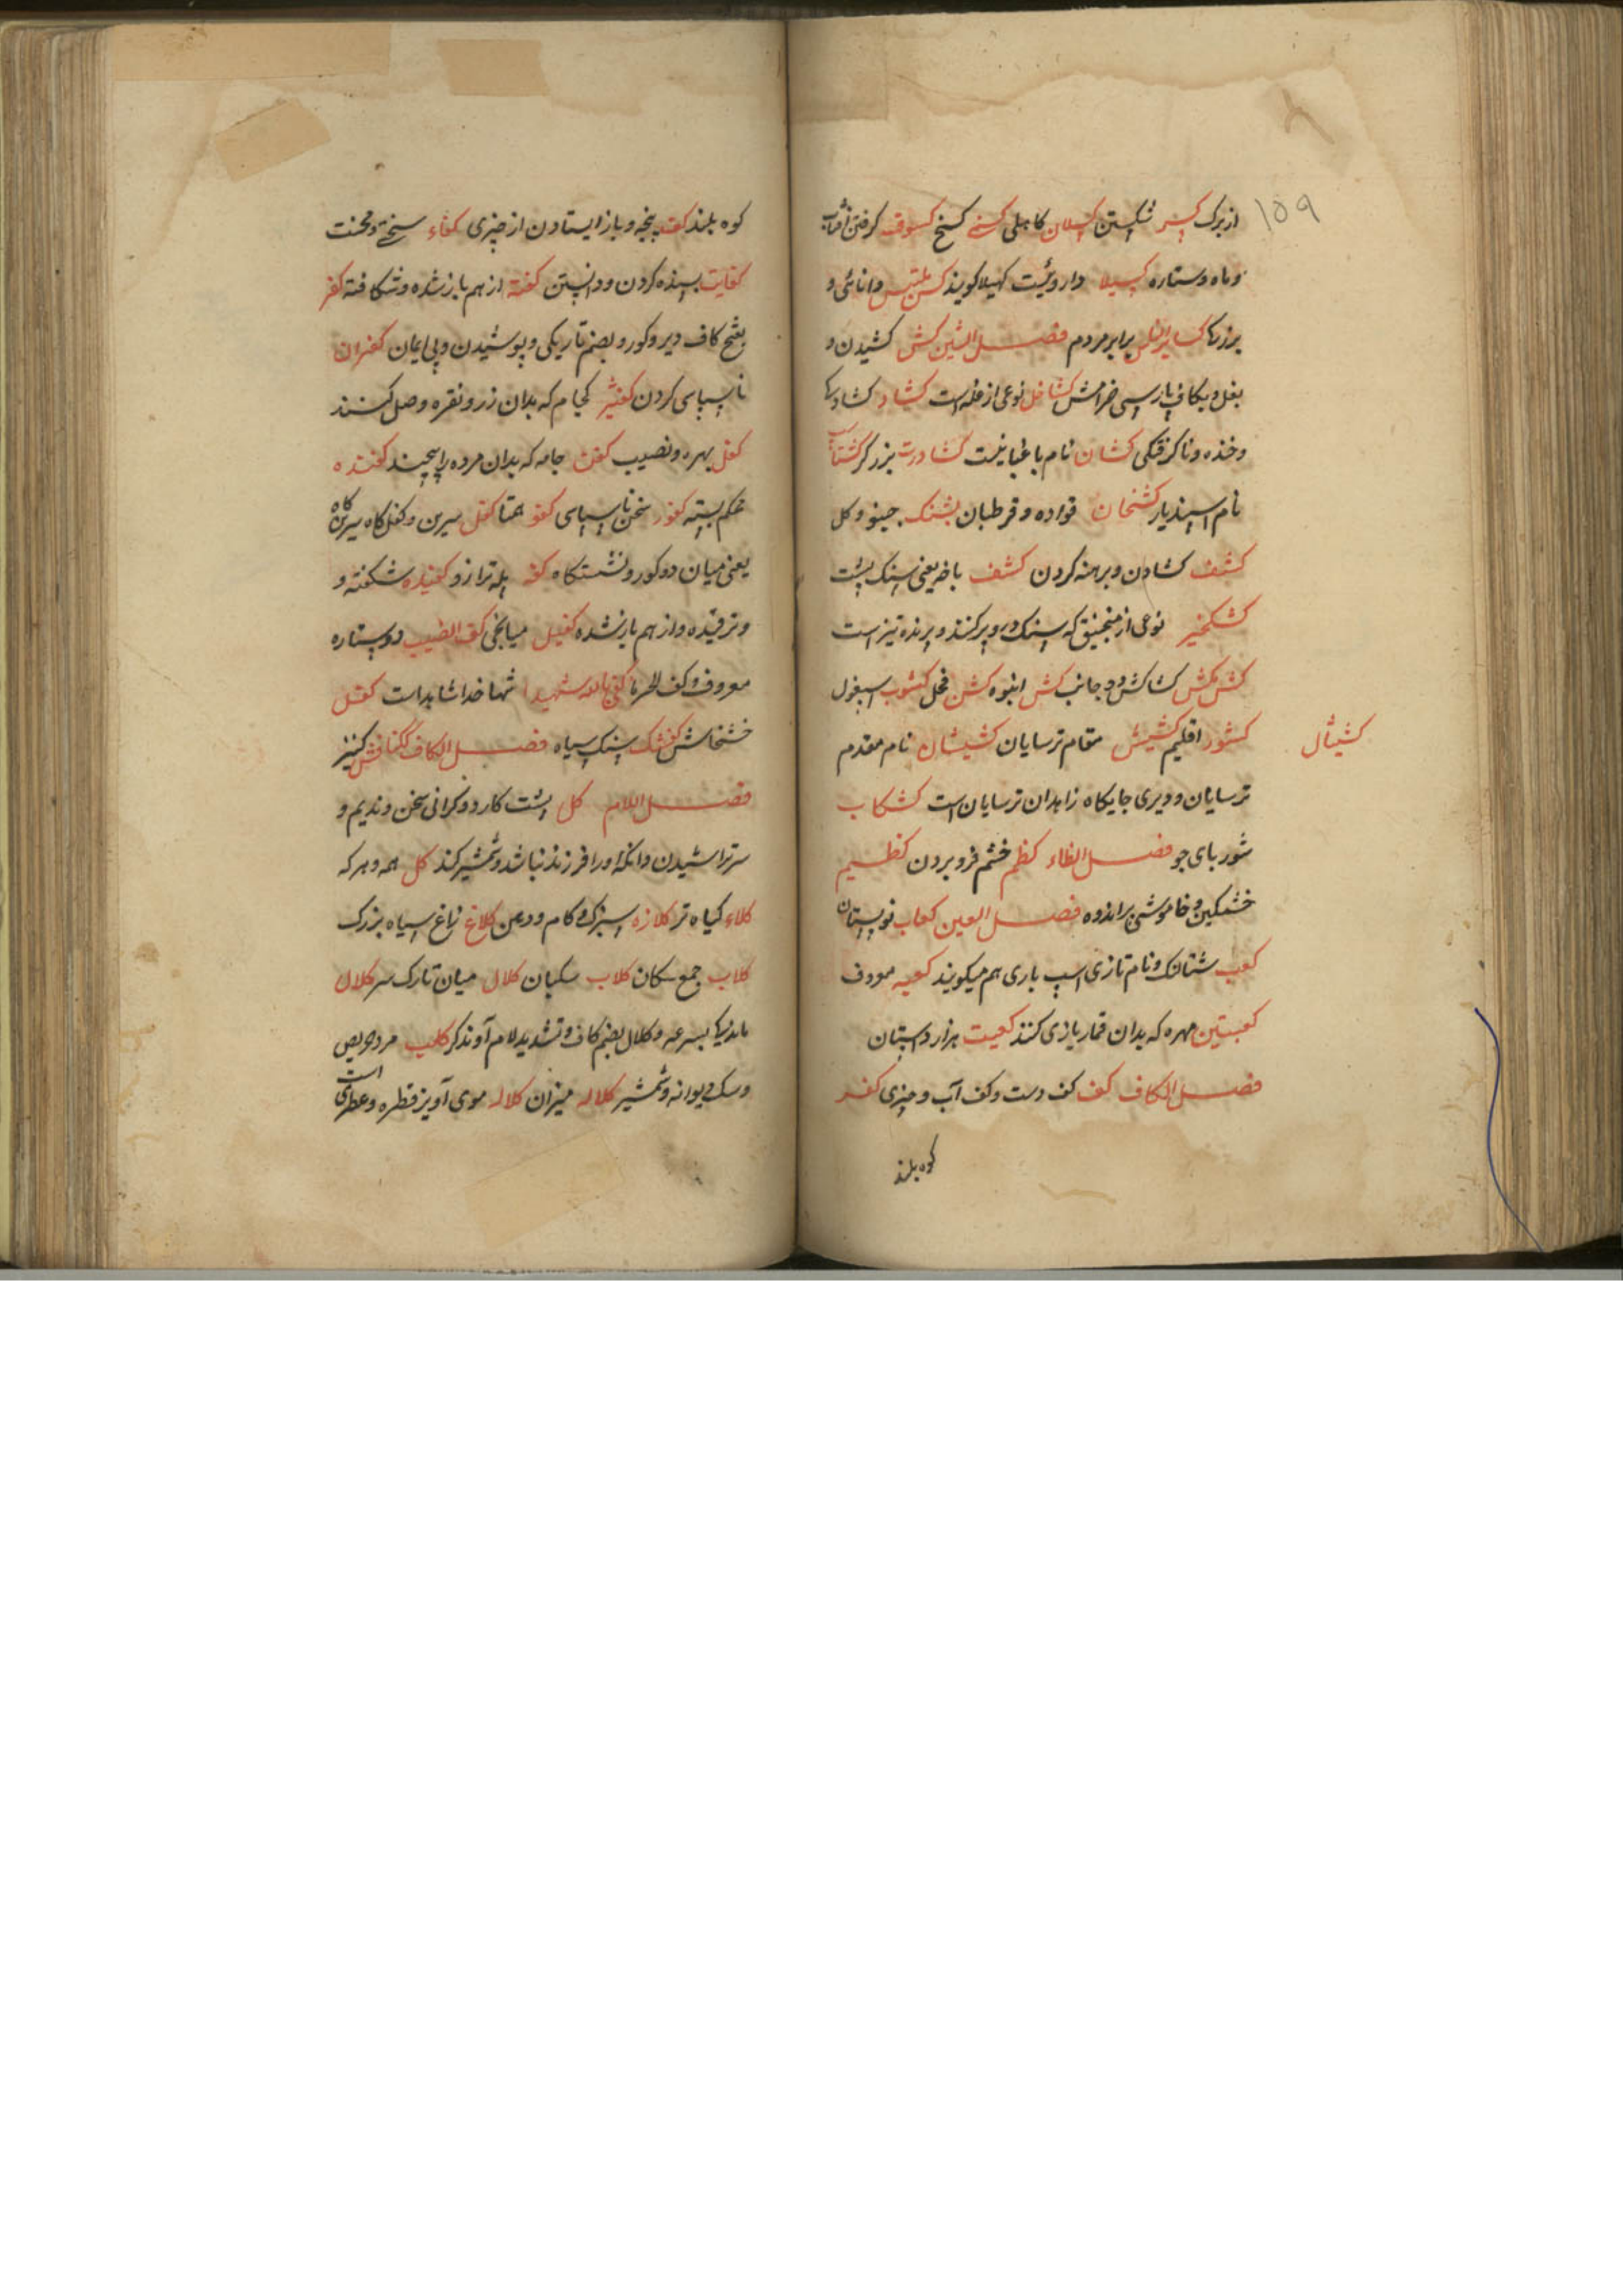 ۱۵۹
از برک کسر شکستن کسلان کاهلی کسنی کسنج کسوف کرفتن آفتاب
و ماه و ستاره کسیلا داروئیست کهیلا کویند دانائی و
برابر مردم فصل الشین کش کشیدن و
بغل و بکاف پارسی خرامش کشاخل نوعی از غله است کشاد
و خنده و ناکرفتکی کشان نام باغبانیست کشاورز بزرکر
نام اسپندیار کشخان قواده و قرطبان کشنک جینو و کل
کشف کشادن و برهنه کردن کشف باخه یعنی سنک پشت
کشکنجیر نوعی از منجنیق که سنک و پر کنند و پرنده تیز است
کش مکش کشاکش دو جانب کشن انبوه کشن فحل کشوب اسبغول
کشیشال
کشور اقلیم کشیش مقام ترسایان کشیشان نام مقدم
ترسایان و دیری جایکاه زاهدان ترسایان است کشکاب
شوربای جو فصل الظاء کظم خشم فرو بردن کظیم
خشمکین و خاموشی بر اندوه فصل العین کعاب نوپستان
کعب شتالنک و نام تازی اسپ باری هم میکویند کعبه معروف
کعبتین مهره که بدان قمار بازی کنند کعیت هزار دستان
فصل الکاف کف کف دست و کف آب و چیزی کفر
کوه بلند
کوه بلند کف پنجه و باز ایستادن از چیزی کفاء سختی و محنت
کفایت بسنده کردن و دانستن کفته از هم باز شده و شکافته کفر
بفتح کاف دیر و کور و بضم تاریکی و پوشیدن و بی ایمان کفران
ناسپاسی کردن کفشیر لحیام که بدان زر و نقره وصل کنند
کفل بهره و نصیب کفن جامه که بدان مرده را پیچند کفنده
محکم بسته کفور سخن ناسپاسی کفو همتا کفل سرین و کفل کاه سرین کاه
یعنی میان دو کور و نشستکاه کفه پله ترازو کفیده شکفته و
و ترقیده و از هم باز شده کفیل میانجی کف الخضیب دو ستاره
معروف و کف الجرما کفی بالله شهیدا شما خدا شاهد است کفل
خشخاش کفشک سنک سیاه فصل الکاف کنیز
فصل اللام کل پشت کارد و کرانی سخن و ندیم و
سر تراشیدن و آنکه او را فرزند نباشد و شمشیر کند کل همه و هر که
کلاء کیاه تر کلازه سبزک و کام و دهن کلاغ زاغ سیاه بزرک
کلاب جمع سکان کلاب سکبان کلال میان تارک سر کلال
ماندنیها بسرعه و کلال بضم کاف و تشدید لام آوندکر کلب مرد حریص
و سک دیوانه و شمشیر کلاله میزان کلاله موی آویز قطره و عطری است